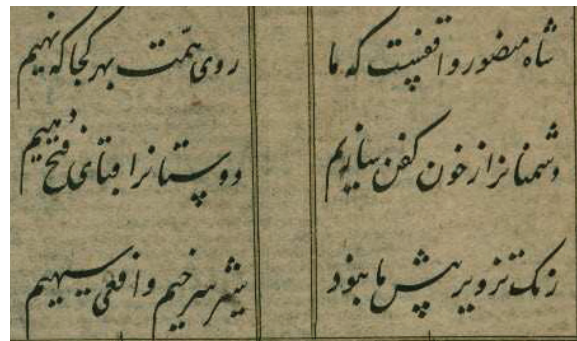 شاه منصور واقفست که ما
روی همّت بهر کجا که نهیم
دشمنانرا ز خون کفن سازیم
دوستانرا قبای فتح دهیم
رنک تزویر پیش ما نبود
شیر سرخیم و افعی سیهیم